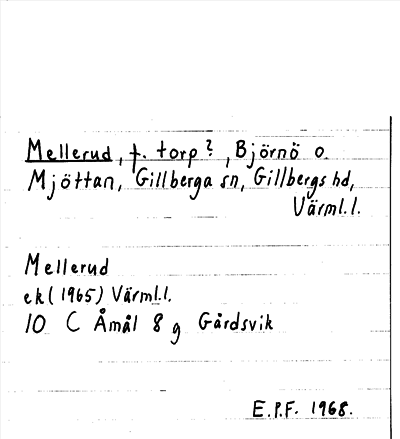 Mellerud, f. torp?, Björnö o.
Mjöttan, Gillberga sn, Gillbergs hd,
Värml. l.
Mellerud
ek (1965) Värml. l.
10 C Åmål 8 g Gårdsvik
E.P.F. 1968.